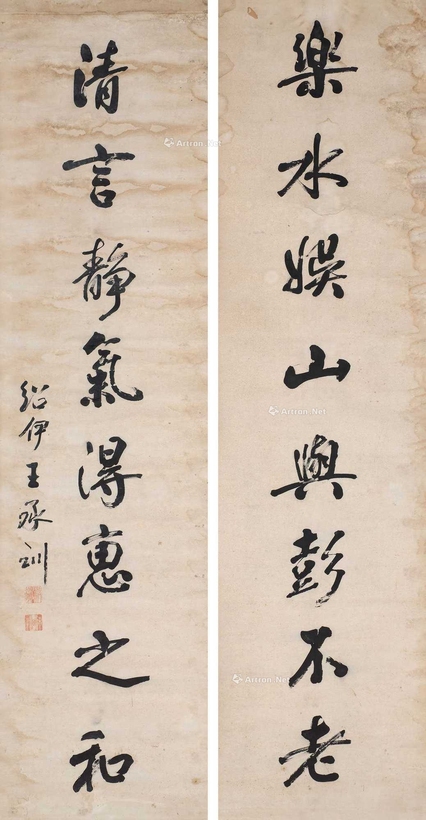 樂水娛山與彭不老
清言靜氣得惠之和
紹伊王承訓
Artron.Net
Artron.Net
Artron.Net